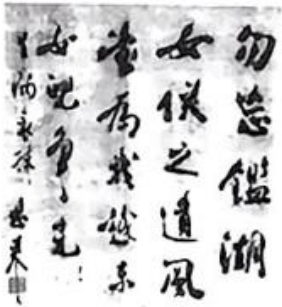 勿忘鑑湖
女俠之遺風
望為我越東
女兒爭光！
周恩來